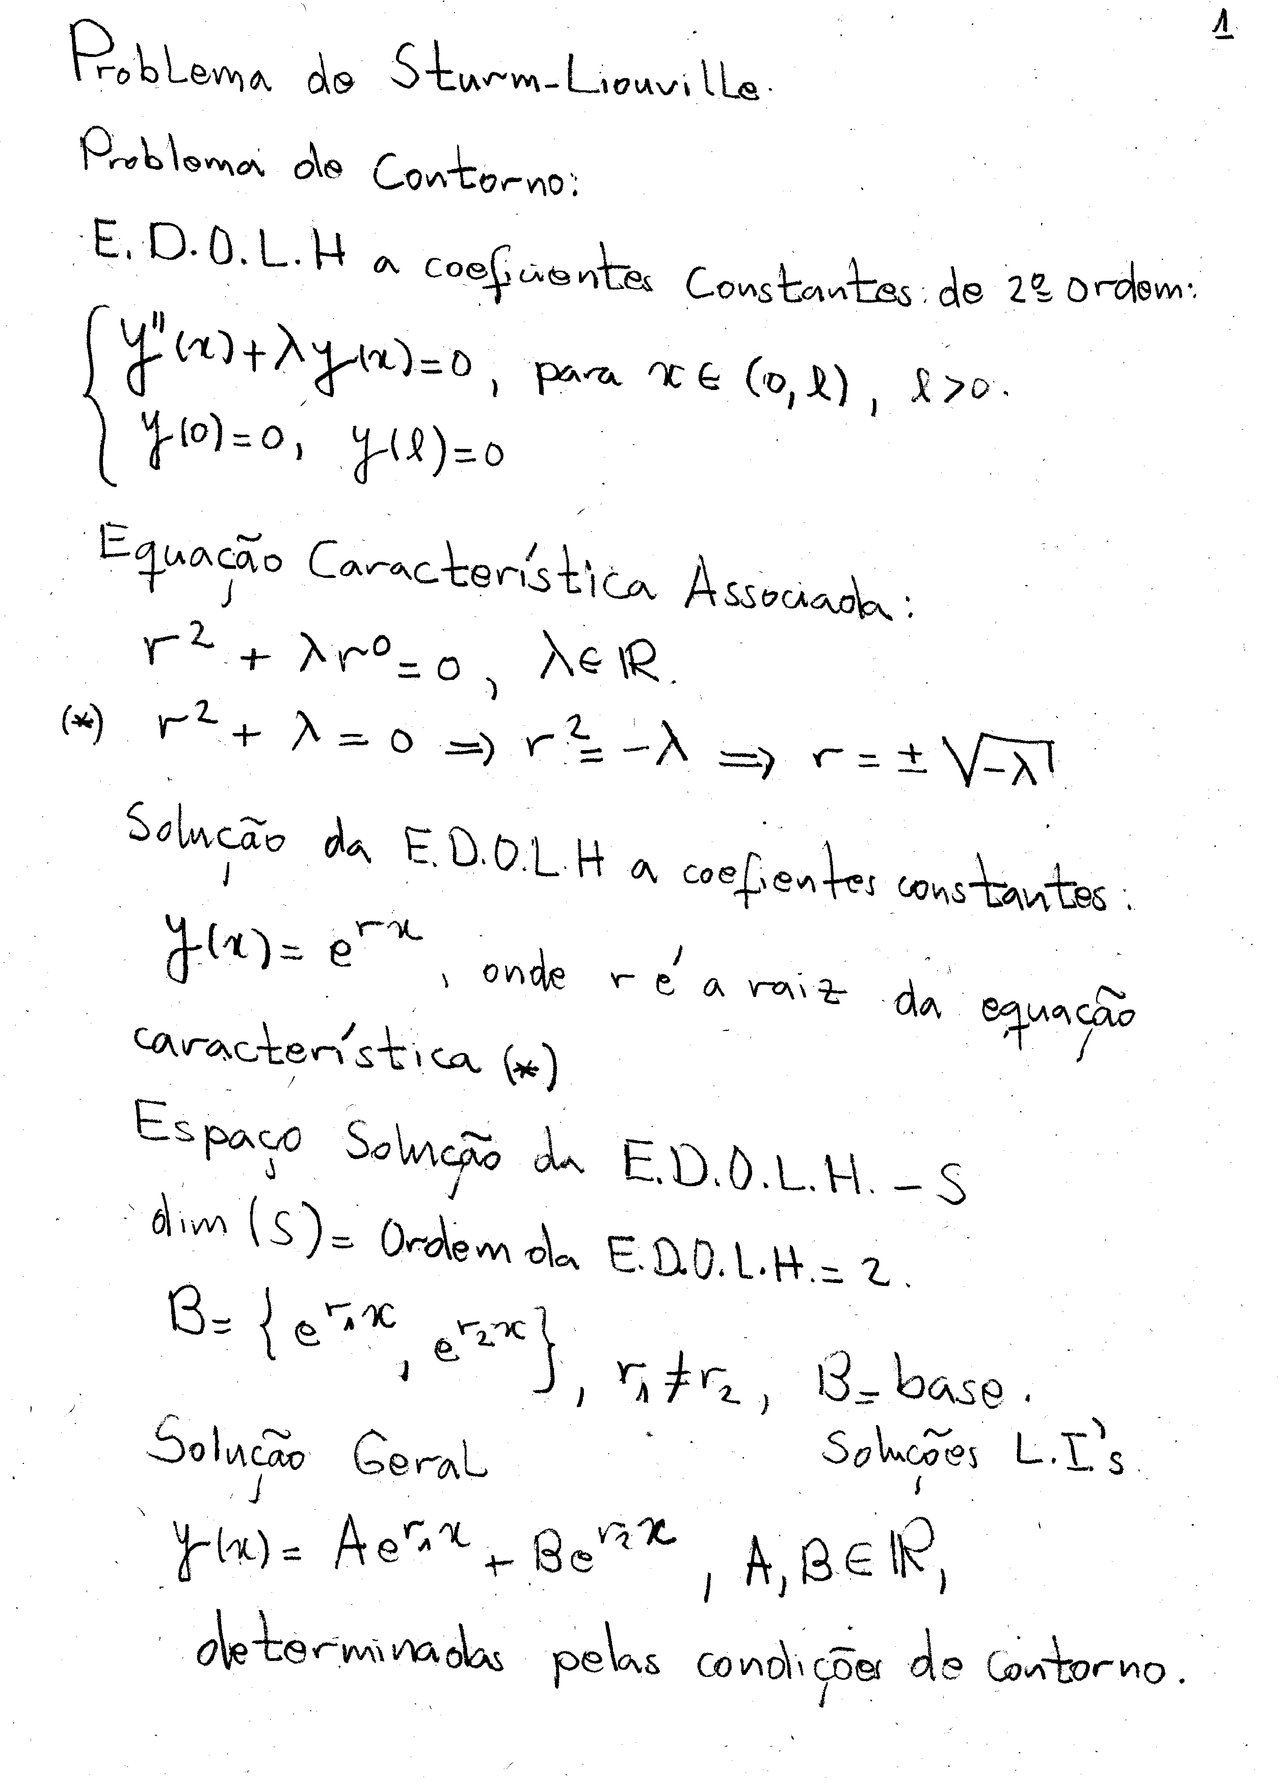 1
Problema de Sturm-Liouville.
Problema de Contorno:
E.D.O.L.H a coeficientes Constantes de 2ª ordem:
y''(x)+λy(x)=0, para x∈(0,l), l>0.
y(0)=0, y(l)=0
Equação Característica Associada:
r² + λr⁰=0, λ∈ℝ.
(*) r² + λ = 0 ⟹ r² = -λ ⟹ r = ± √-λ
Solução da E.D.O.L.H a coefientes constantes:
y(x)= e^{rx}, onde r é a raiz da equação
característica (*)
Espaço Solução da E.D.O.L.H. - S
dim(S)= Ordem da E.D.O.L.H.= 2.
B= {e^{r₁x}, e^{r₂x}}, r₁≠r₂, B= base.
Solução Geral Soluções L.I's.
y(x)= Ae^{r₁x} + Be^{r₂x}, A,B∈ℝ,
determinadas pelas condições de contorno.